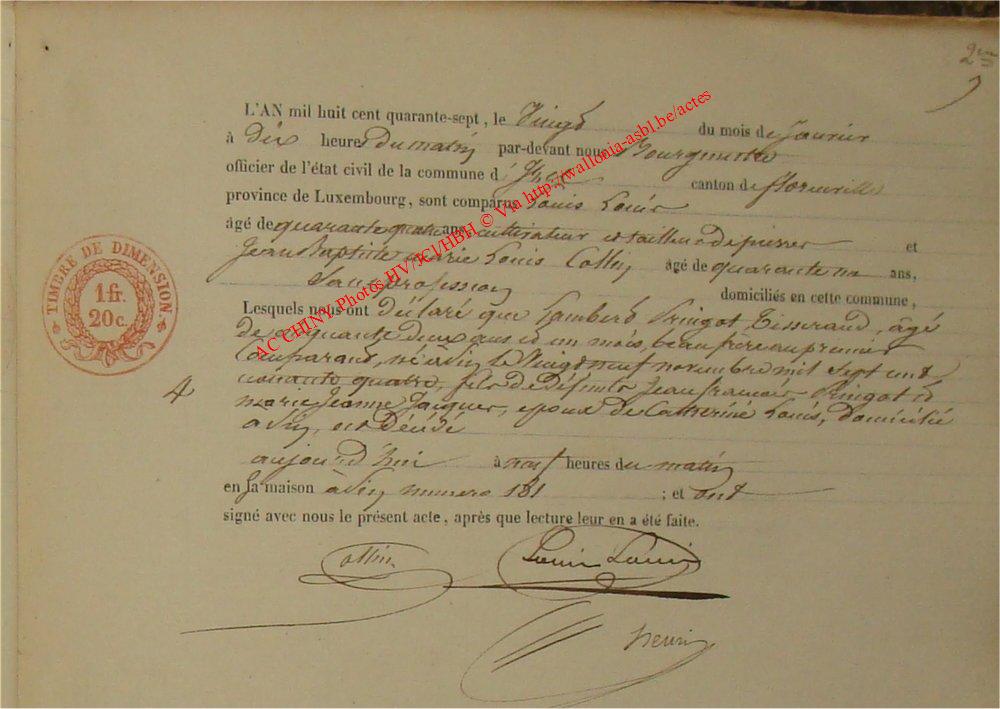 2me
L'AN mil huit cent quarante-sept, le Vingt du mois de Janvier
à dix heures du matin par-devant nous Bourgmestre
officier de l'état civil de la commune d' Izel canton de florenville
province de Luxembourg, sont comparus Louis Louis
âgé de quarante quatre ans, cultivateur et tailleur de pierres et
Jean Baptiste marie Louis Collin âgé de quarante un ans,
Sans profession domiciliés en cette commune,
Lesquels nous ont Déclaré que Lambert Pringot Tisserand, âgé
de cinquante deux ans et un mois, beau frere au premier
Comparant, né a le Vingt neuf novembre mil sept cent
nonante quatre, fils de Défunts Jean françois Pringot et
marie Jeanne Jacques, epoux de Catherine Louis, domicilié
a est Décédé
aujourd'hui à neuf heures du matin
en sa maison à numero 181 ; et ont
signé avec nous le présent acte, après que lecture leur en a été faite.
4
TIMBRE DE DIMENSION
1 fr.
20 c.
Collin
Louis Louis
henri
AC CHINY, Photos HV/JCl/HBH © Via http://wallonia-asbl.be/actes